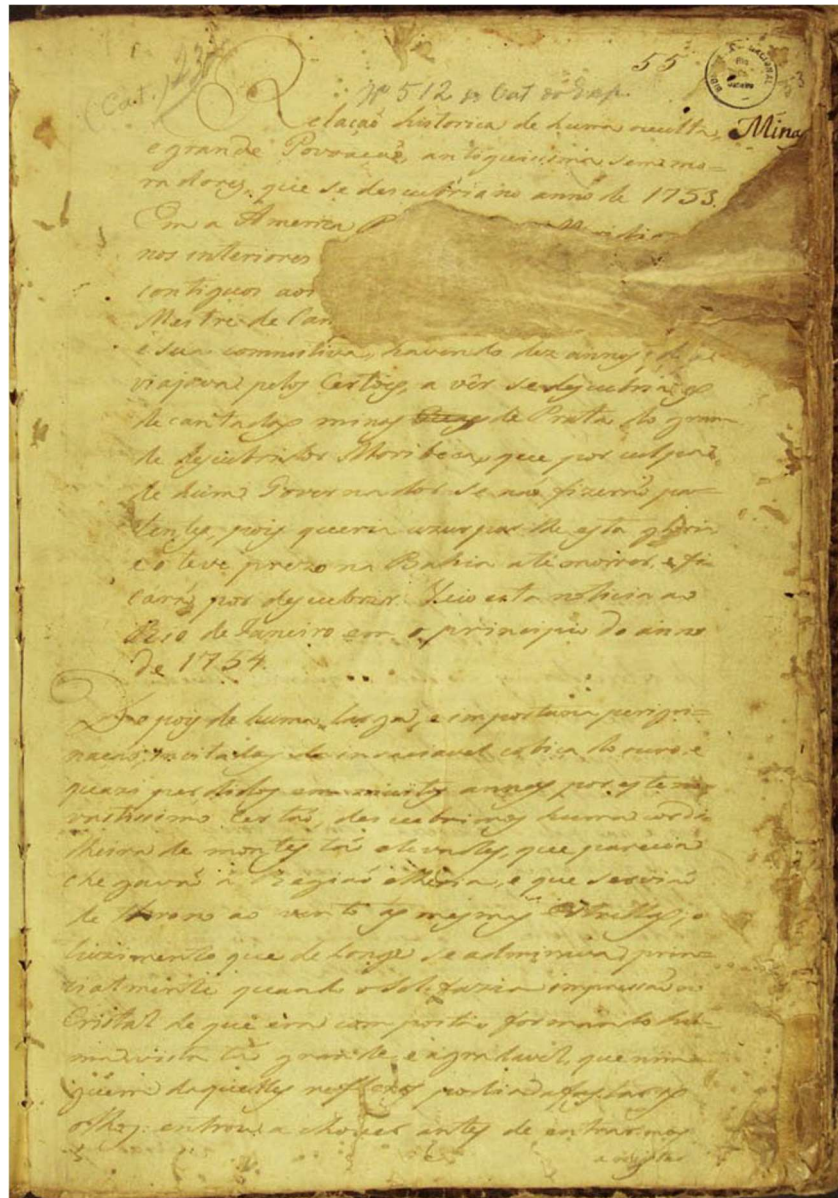 (Cat. 1230
55
BIBLIOTHECA NACIONAL RIO DE JANEIRO
Nº 512 do Cat. da Exp.
Relação historica de huma occulta, Minas
e grande Povoação, antiquissima sem mo-
radores, que se descubriu no anno de 1753.
Em a America
nos interiores
contiguos aos
Mestre de Can
e sua commitiva, havendo dez annos, q̃
viajava pelos Certões, a vêr se descubria as
decantadas minas de Prata do gran-
de descubridor Moribeca, que por culpa
de hum Governador se não fizerão pa-
tentes, pois queria uzurparlhe esta gloria
e o teve prezo na Bahia até morrer, e fi-
carão por descubrir. Veio esta noticia ao
Rio de Janeiro em o principio do anno
de 1754.
Depois de huma larga, e importuna perigri-
nação, incitados da insaciavel cobiça do ouro, e
quazi perdidos em muitos annos por este
vastissimo Certão, descubrimos huma cordi-
lheira de montes tão elevados, que parecia
chegavão à Região etheria, e que servião
de throno ao vento, às mesmas Estrellas; o
luzimento que de longe se admirava, prin-
cipalmente quando o Sol fazia impressão ao
Cristal de que era composta, formando hu-
ma vista tão grande, e agradavel, que nin-
guem daquelles reflexos podia afastar os
olhos: entrou a chover antes de entrarmos
a registar